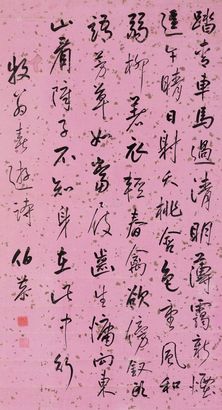 踏青車馬過清明薄靄新煙
逗午晴日射夭桃含色重風和
弱柳著衣輕春禽欲傍釵頭
語芳草如當屐齒生慵向東
山看障子不知身在此中行
牧翁春遊詩 伯恭